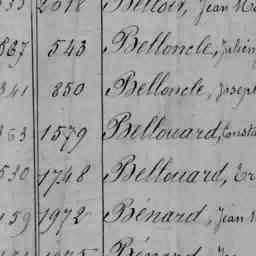 2018 Belloir, Jean Ma
837 543 Belloncle, Julien
341 850 Belloncle, Joseph
363 1579 Bellouard, Consta
530 1748 Bellouard, Er
159 1972 Bénard, Jean M
Bénard